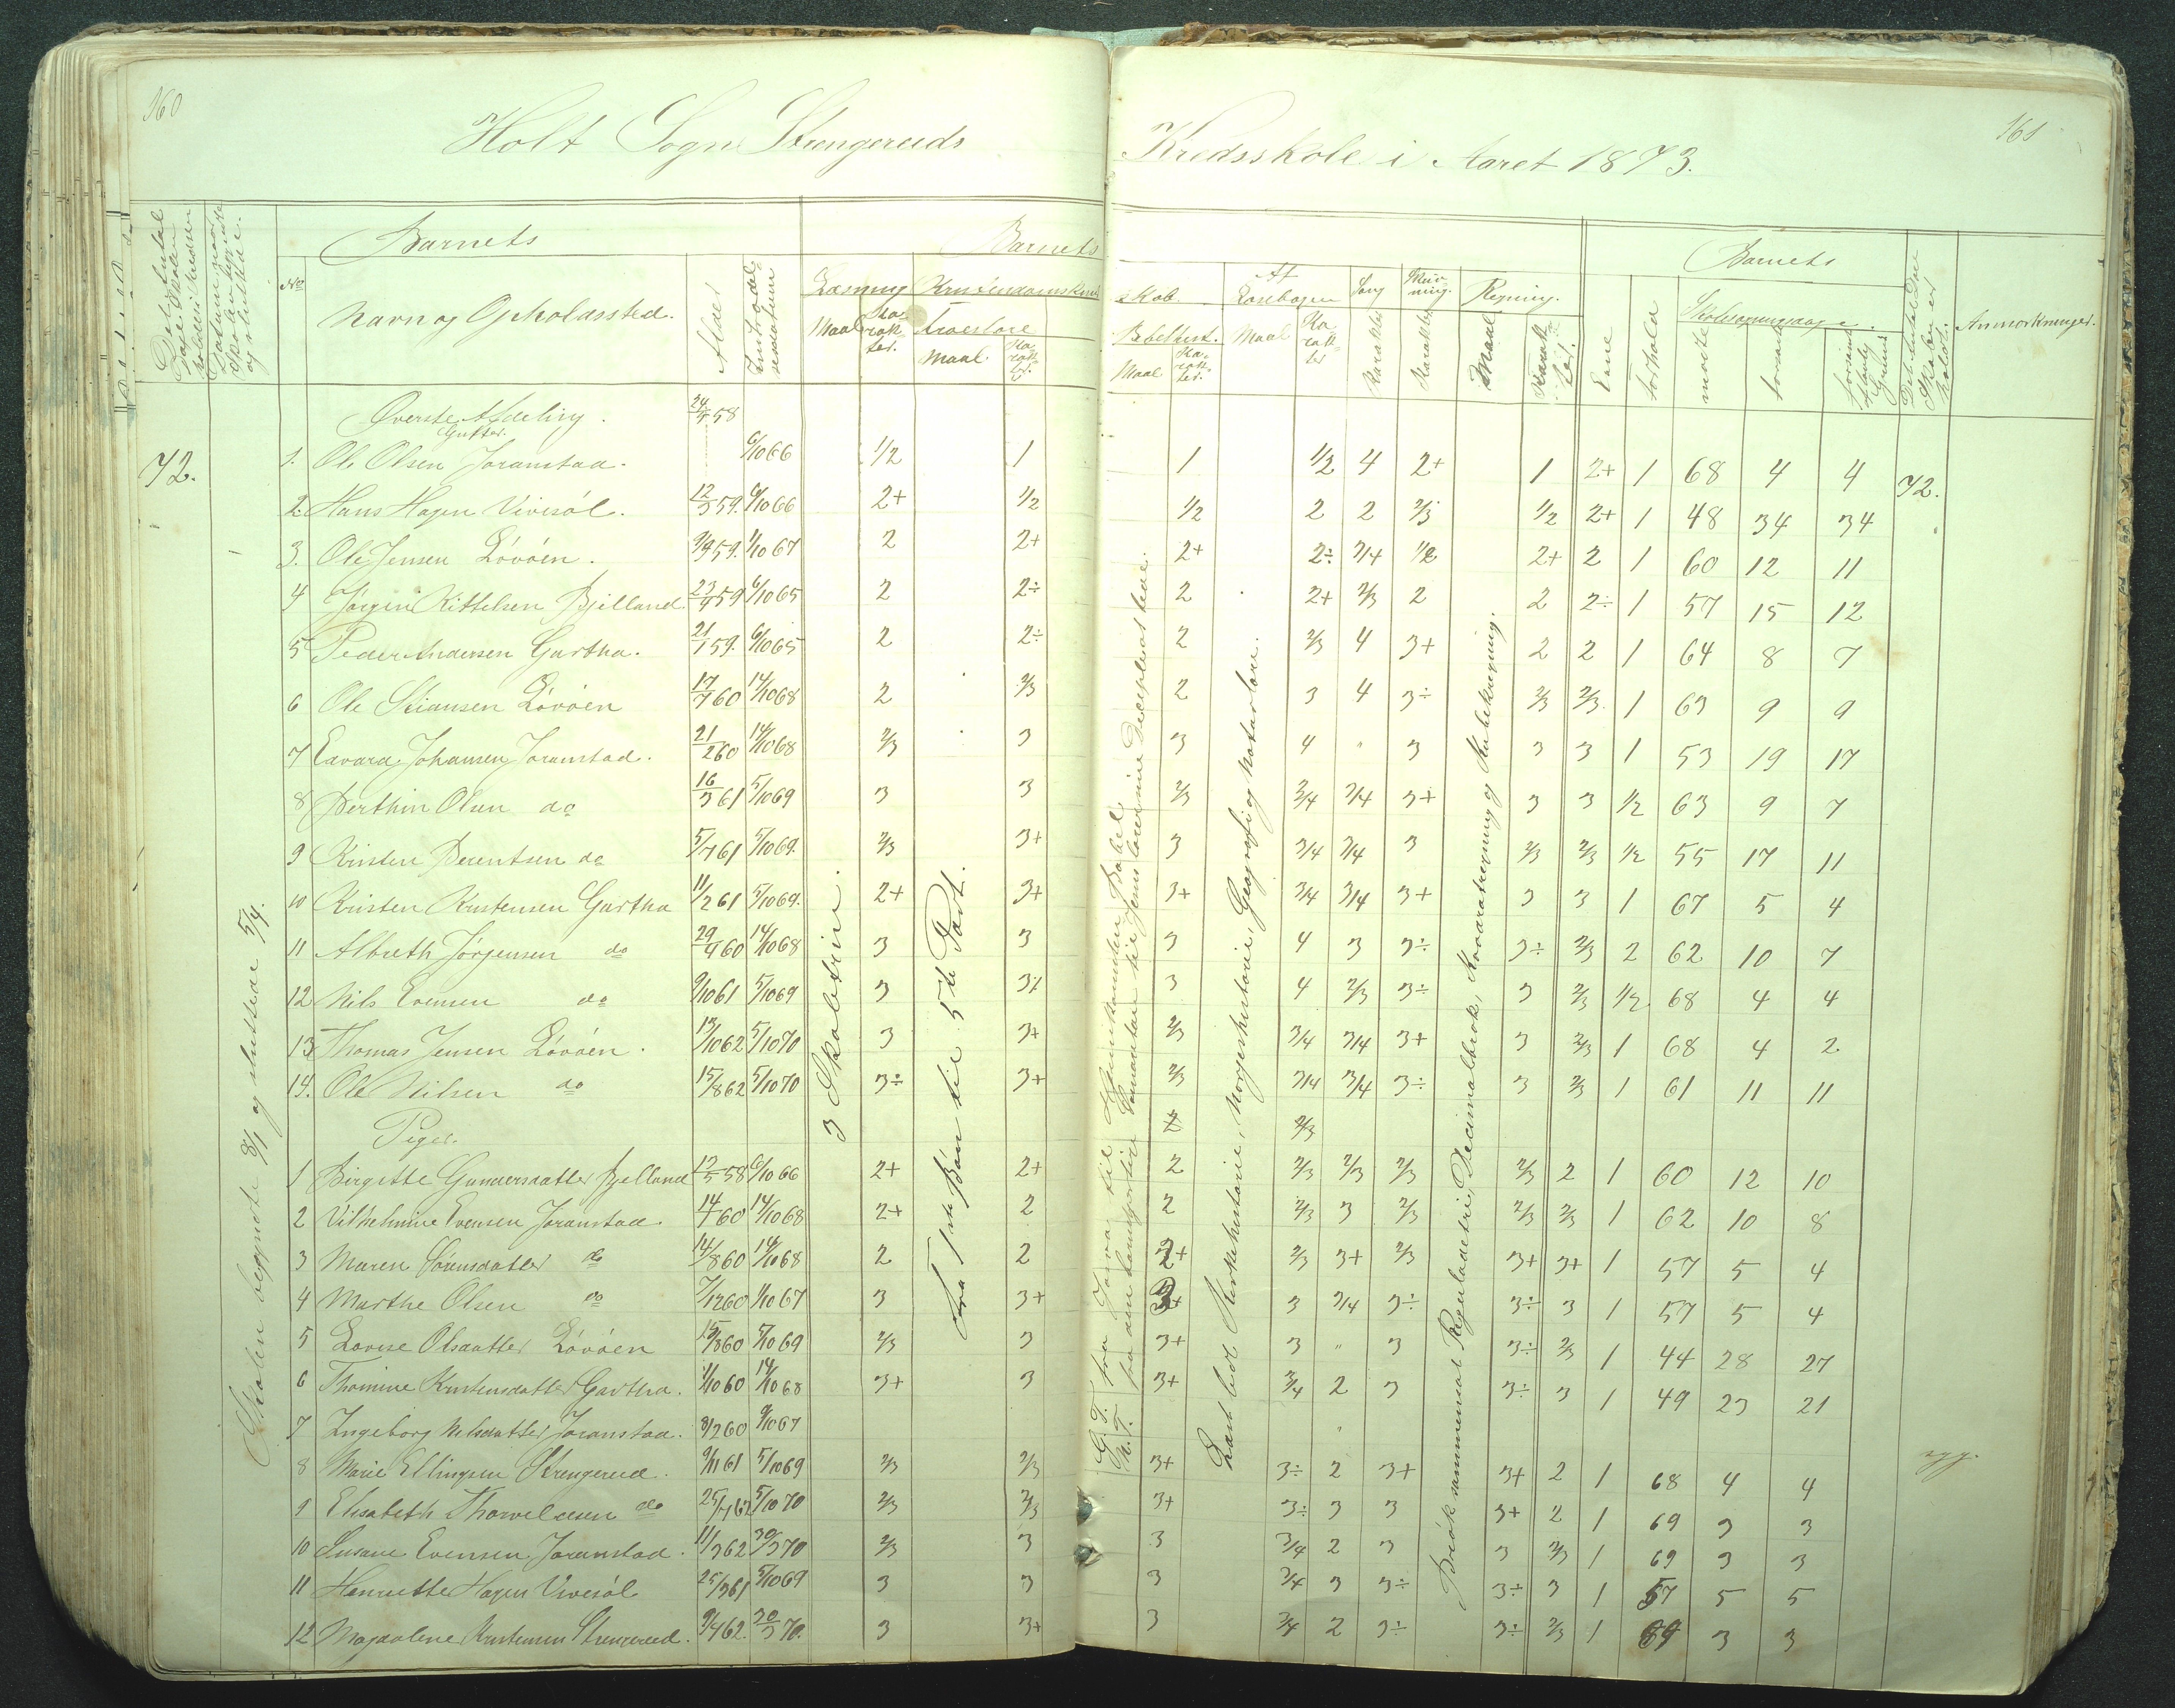 160
161
Holt Sogn Strengereids Kredsskole i Aaret 1873.
Barnets
Barnets
Barnets
No
Navn og Opholdssted.
Alder
Læsning
Troeslære
Maal
Maal.
Maal
Maal
Maal
Af Læsebogen
Sang
Regning.
Evne
Forhold
mødte
forsømte
Anmærkninger.
Øverste Afdeling. 24/5 58
Gutter.
72. 1. Ole Olsen Joramstad. 6/10 66 1/2 1 1 1/2 4 2+ 1 2+ 1 68 4 4 72.
2. Hans Hagen Vivesøl. 12/3 59. 6/10 66 2+ 1/2 1/2 2 2 2/3 1/2 2+ 1 48 34 34
3. Ole Jensen Løvøen. 9/9 59. 1/10 67 2 2+ 2+ 2÷ 3/4 1/2 2+ 2 1 60 12 11
4 Jørgen Kittelsen Bjelland 23/9 59 6/10 65 2 2÷ 2 2+ 2/3 2 2 2÷ 1 57 15 12
5 Peder Andersen Gartha. 21/1 59. 6/10 65 2 2÷ 2 2/3 4 3+ 2 2 1 64 8 7
6 Ole Stiansen Løvøen 17/7 60 14/10 68 2 2/3 2 3 4 3÷ 2/3 2/3 1 63 9 9
7 Edvard Johansen Joramstad. 21/2 60 14/10 68 2/3 3 3 4 " 3 3 3 1 53 19 17
8 Berthin Olsen do 16/3 61 5/10 69 3 3 2/3 3/4 3/4 3+ 3 3 1/2 63 9 7
9 Kristen Berentsen do 5/7 61 5/10 69. 2/3 3+ 3 3/4 3/4 3 2/3 2/3 1/2 55 17 11
10 Kristen Kristensen Gartha 11/2 61 5/10 69. 2+ 3+ 3+ 3/4 3/4 3+ 3 3 1 67 5 4
11 Albreth Jørgensen do 29/9 60 14/10 68 3 3 3 4 3 3÷ 3÷ 2/3 2 62 10 7
12 Nils Evensen do 9/10 61 5/10 69 3 3+ 3 4 2/3 3÷ 3 2/3 1/2 68 4 4
13 Thomas Jensen Løvøen. 13/10 62 5/10 70 3 3+ 2/3 3/4 3/4 3+ 3 2/3 1 68 4 2
14. Ole Nilsen do 15/8 62 5/10 70 3÷ 3+ 2/3 3/4 3/4 3÷ 3 2/3 1 61 11 11
Piger. 2 2/3
1 Birgitte Gundersdatter Bjelland 12/5 58 6/10 66 2+ 2+ 2 2/3 2/3 2/3 2/3 2 1 60 12 10
2 Vilhelmine Evensen Joramstad. 14/7 60 14/10 68 2+ 2 2 2/3 3 2/3 2/3 2/3 1 62 10 8
3 Maren Sørensdatter do 14/8 60 14/10 68 2 2 2+ 2/3 3+ 2/3 3+ 3+ 1 57 5 4
4 Marthe Olsen do 7/12 60 1/10 67 3 3+ 3+ 3 3/4 3÷ 3÷ 3 1 57 5 4
5 Lovise Olsdatter Løvøen 15/8 60 5/10 69 2/3 3 3+ 3 " 3 3÷ 2/3 1 44 28 27
6 Thomine Kristensdatter Gartha. 1/10 60 14/10 68 3+ 3 3+ 3/4 2 3 3÷ 3 1 49 23 21
7 Ingeborg Nilsdatter Joramstad. 8/2 60 9/10 67
8 Marie Ellingsen Strengereid. 9/11 61 5/10 69 2/3 2/3 3+ 3÷ 2 3+ 3+ 2 1 68 4 4
9 Elisabeth Thorvaldsen do 25/7 62 5/10 70 2/3 2/3 3+ 3÷ 3 3 3+ 2 1 69 3 3
10 Susane Evensen Joramstad. 11/3 62 30/3 70 2/3 3 3 3/4 2 3 3 2/3 1 69 3 3
11 Henriette Hagen Vivesøl 25/3 61 5/10 69 3 3 3 3/4 3 3÷ 3÷ 3 1 57 5 5
12 Magdalene Kristensen Strengereid. 9/4 62. 30/3 70. 3 3+ 3 3/4 2 3÷ 3÷ 2/3 1 69 3 3
Skolen begyndte 8/1 og sluttede 5/4.
3 Skoletrin.
Fra 1ste Bøn til 5te Part.
G.T. fra
N.T. fra
Læst ved Kirkehistorie, Norgeshistorie, Geografi og Naturlære.
Brøk, sammensat Reguladetri, Decimalbrok, Kvadratregning og Kubikregning.